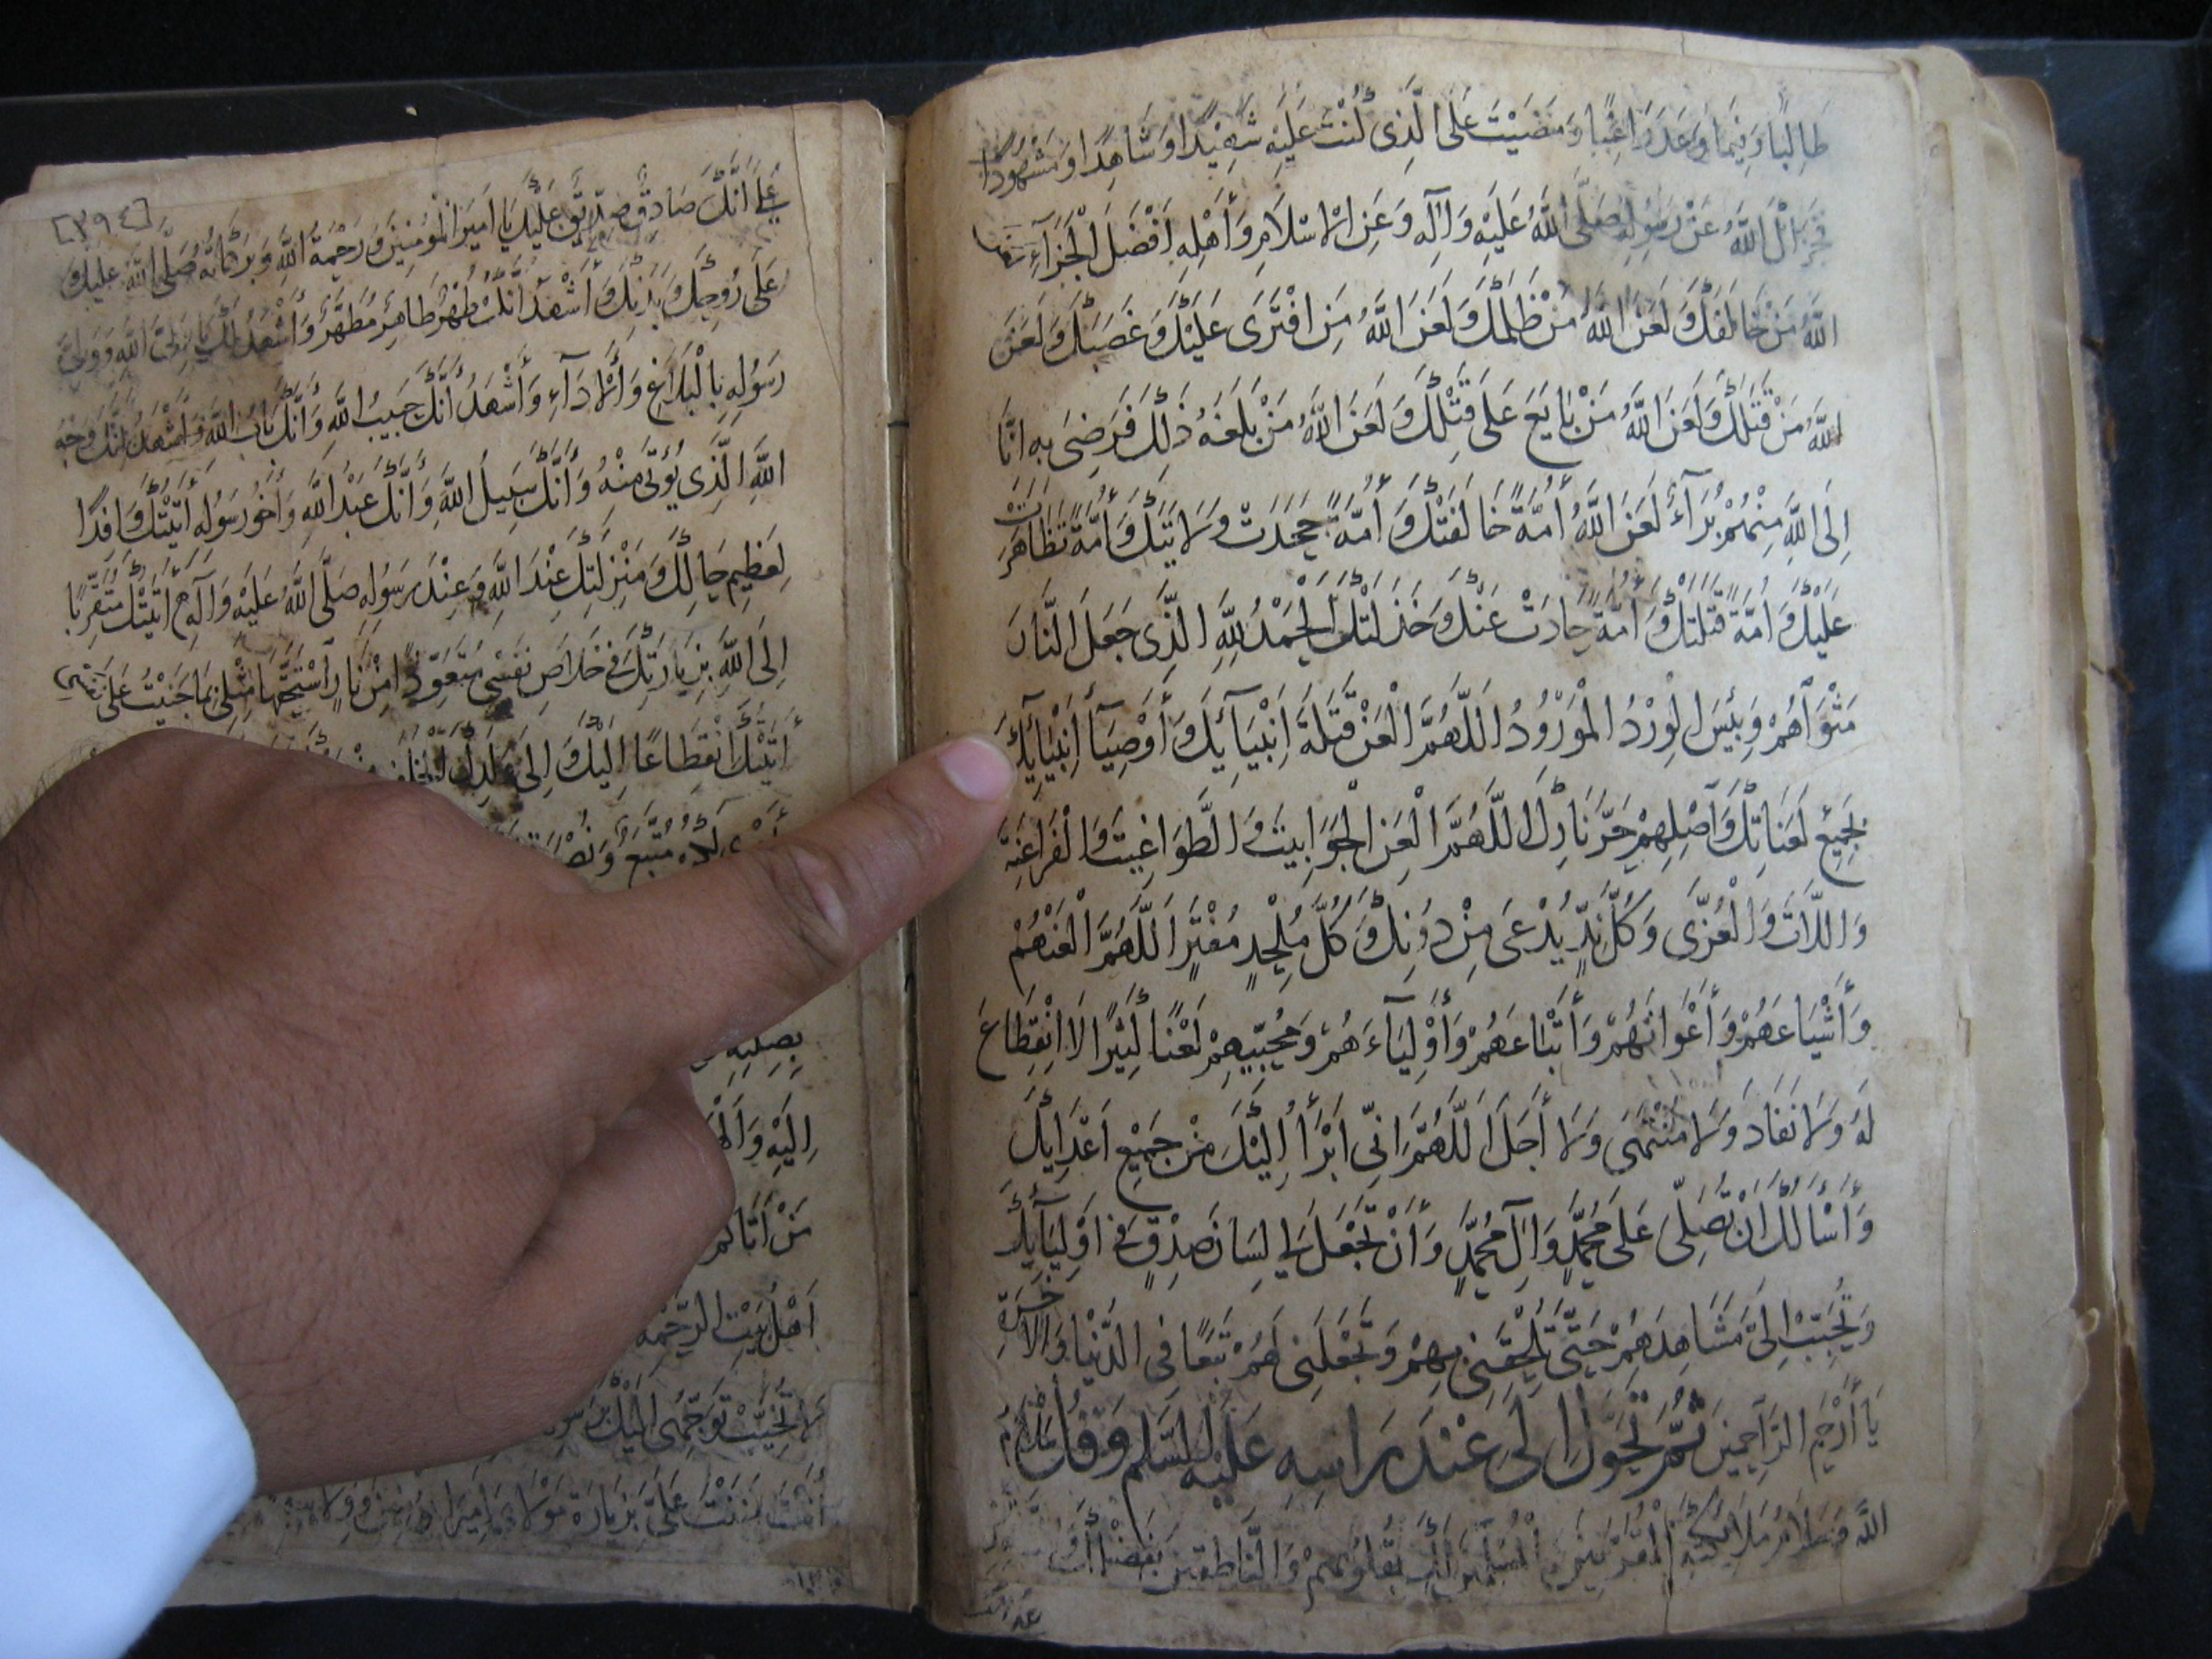 طَالِبًا وَفِيمَا وَعَدَ رَاغِبًا وَمَضَيْتَ عَلَى الَّذِي كُنْتَ عَلَيْهِ شَهِيْدًا وَشَاهِدًا وَمَشْهُودًا
فَجَزَاكَ اللهُ عَنْ رَسُولِهِ صَلَّى اللهُ عَلَيْهِ وَآلِهِ وَعَنِ الْاِسْلَامِ وَأَهْلِهِ اَفْضَلَ الْجَزَآءِ
اللهُ مَنْ خَالَفَكَ وَلَعَنَ اللهُ مَنْ ظَلَمَكَ وَلَعَنَ اللهُ مَنِ افْتَرَى عَلَيْكَ وَغَصَبَكَ وَلَعَنَ
اللهُ مَنْ قَتَلَكَ وَلَعَنَ اللهُ مَنْ بَايَعَ عَلَى قَتْلِكَ وَلَعَنَ اللهُ مَنْ بَلَغَهُ ذَلِكَ فَرَضِيَ بِهِ اِنَّا
اِلَى اللهِ مِنْهُمْ بُرَآءُ لَعَنَ اللهُ أُمَّةً خَالَفَتْكَ وَأُمَّةً جَحَدَتْ وَلَايَتَكَ وَأُمَّةً تَظَاهَرَتْ
عَلَيْكَ وَأُمَّةً قَتَلَتْكَ وَأُمَّةً حَادَتْ عَنْكَ وَخَذَلَتْكَ اَلْحَمْدُ لِلّٰهِ الَّذِي جَعَلَ النَّارَ
مَثْوَاهُمْ وَبِئْسَ الْوِرْدُ الْمَوْرُوْدُ اَللّٰهُمَّ الْعَنْ قَتَلَةَ اَنْبِيَآئِكَ وَأَوْصِيَآءِ اَنْبِيَآئِكَ
بِجَمِيْعِ لَعَنَاتِكَ وَأَصْلِهِمْ حَرَّ نَارِكَ اَللّٰهُمَّ الْعَنِ الْجَوَابِيتَ وَالطَّوَاغِيتَ وَالْفَرَاعِنَةَ
وَاللَّاتَ وَالْعُزَّى وَكُلَّ نِدٍّ يُدْعَى مِنْ دُونِكَ وَكُلَّ مُلْحِدٍ مُفْتَرٍ اَللّٰهُمَّ الْعَنْهُمْ
وَأَشْيَاعَهُمْ وَأَعْوَانَهُمْ وَأَتْبَاعَهُمْ وَأَوْلِيَآءَهُمْ وَمُحِبِّيهِمْ لَعْنًا كَثِيْرًا لَا اِنْقِطَاعَ
لَهُ وَلَا نَفَادَ وَلَا مُنْتَهَى وَلَا أَجَلَ اَللّٰهُمَّ اِنِّي اَبْرَأُ اِلَيْكَ مِنْ جَمِيْعِ اَعْدَائِكَ
وَأَسْأَلُكَ اَنْ تُصَلِّيَ عَلَى مُحَمَّدٍ وَآلِ مُحَمَّدٍ وَأَنْ تَجْعَلَ لِي لِسَانَ صِدْقٍ فِي اَوْلِيَآئِكَ
وَتُحَبِّبَ اِلَيَّ مَشَاهِدَهُمْ حَتَّى تُلْحِقَنِي بِهِمْ وَتَجْعَلَنِي لَهُمْ تَبَعًا فِي الدُّنْيَا وَالْآخِرَةِ
يَا أَرْحَمَ الرَّاحِمِينَ ثُمَّ تَحَوَّلْ اِلَى عِنْدَ رَاسِهِ عَلَيْهِ السَّلَم وَقُلْ سَلَامُ
اللهِ وَسَلَامُ مَلَائِكَتِهِ الْمُقَرَّبِيْنَ بِقُلُوبِهِمْ وَالنَّاطِقِيْنَ بِفَضْلِكَ
[٣٩٤]
عَلَى اَنَّكَ صَادِقٌ صِدِّيقٌ عَلَيْكَ يَا اَمِيرَ الْمُؤْمِنِيْنَ وَرَحْمَةُ اللهِ وَبَرَكَاتُهُ صَلَّى اللهُ عَلَيْكَ وَ
عَلَى رُوحِكَ وَبَدَنِكَ وَأَشْهَدُ اَنَّكَ طُهْرٌ طَاهِرٌ مُطَهَّرٌ وَأَشْهَدُ لَكَ يَا وَلِيَّ اللهِ وَوَلِيَّ
رَسُولِهِ بِالْبَلَاغِ وَالْأَدَآءِ وَأَشْهَدُ أَنَّكَ حَبِيبُ اللهِ وَأَنَّكَ بَابُ اللهِ وَأَشْهَدُ اَنَّكَ وَجْهُ
اللهِ الَّذِي يُؤْتَى مِنْهُ وَأَنَّكَ سَبِيلُ اللهِ وَأَنَّكَ عَبْدُ اللهِ وَأَخُو رَسُولِهِ أَتَيْتُكَ وَافِدًا
لِعَظِيمِ حَالِكَ وَمَنْزِلَتِكَ عِنْدَ اللهِ وَعِنْدَ رَسُولِهِ صَلَّى اللهُ عَلَيْهِ وَآلِهِ أَتَيْتُكَ مُتَقَرِّبًا
اِلَى اللهِ بِزِيَارَتِكَ فِي خَلَاصِ نَفْسِي مُتَعَوِّذًا مِنْ نَارٍ اسْتَحَقَّهَا مِثْلِي بِمَا جَنَيْتُ عَلَى نَفْسِي
أَتَيْتُكَ انْقِطَاعًا اِلَيْكَ وَاِلَى وَلَدِكَ الْخَلَفِ
لَكُمْ مُتَّبِعٌ وَنُصْرَتِي
بِصِلَتِهِ
اِلَيْهِ وَ
مَنْ اَتَاكُمْ
اَهْلُ بَيْتِ الرَّحْمَةِ
لَا تُخَيِّبْ تَوَجُّهِي اِلَيْكَ
أَنْتَ مَنَنْتَ عَلَيَّ بِزِيَارَةِ مَوْلَايَ اَمِيرِ الْمُؤْمِنِيْنَ